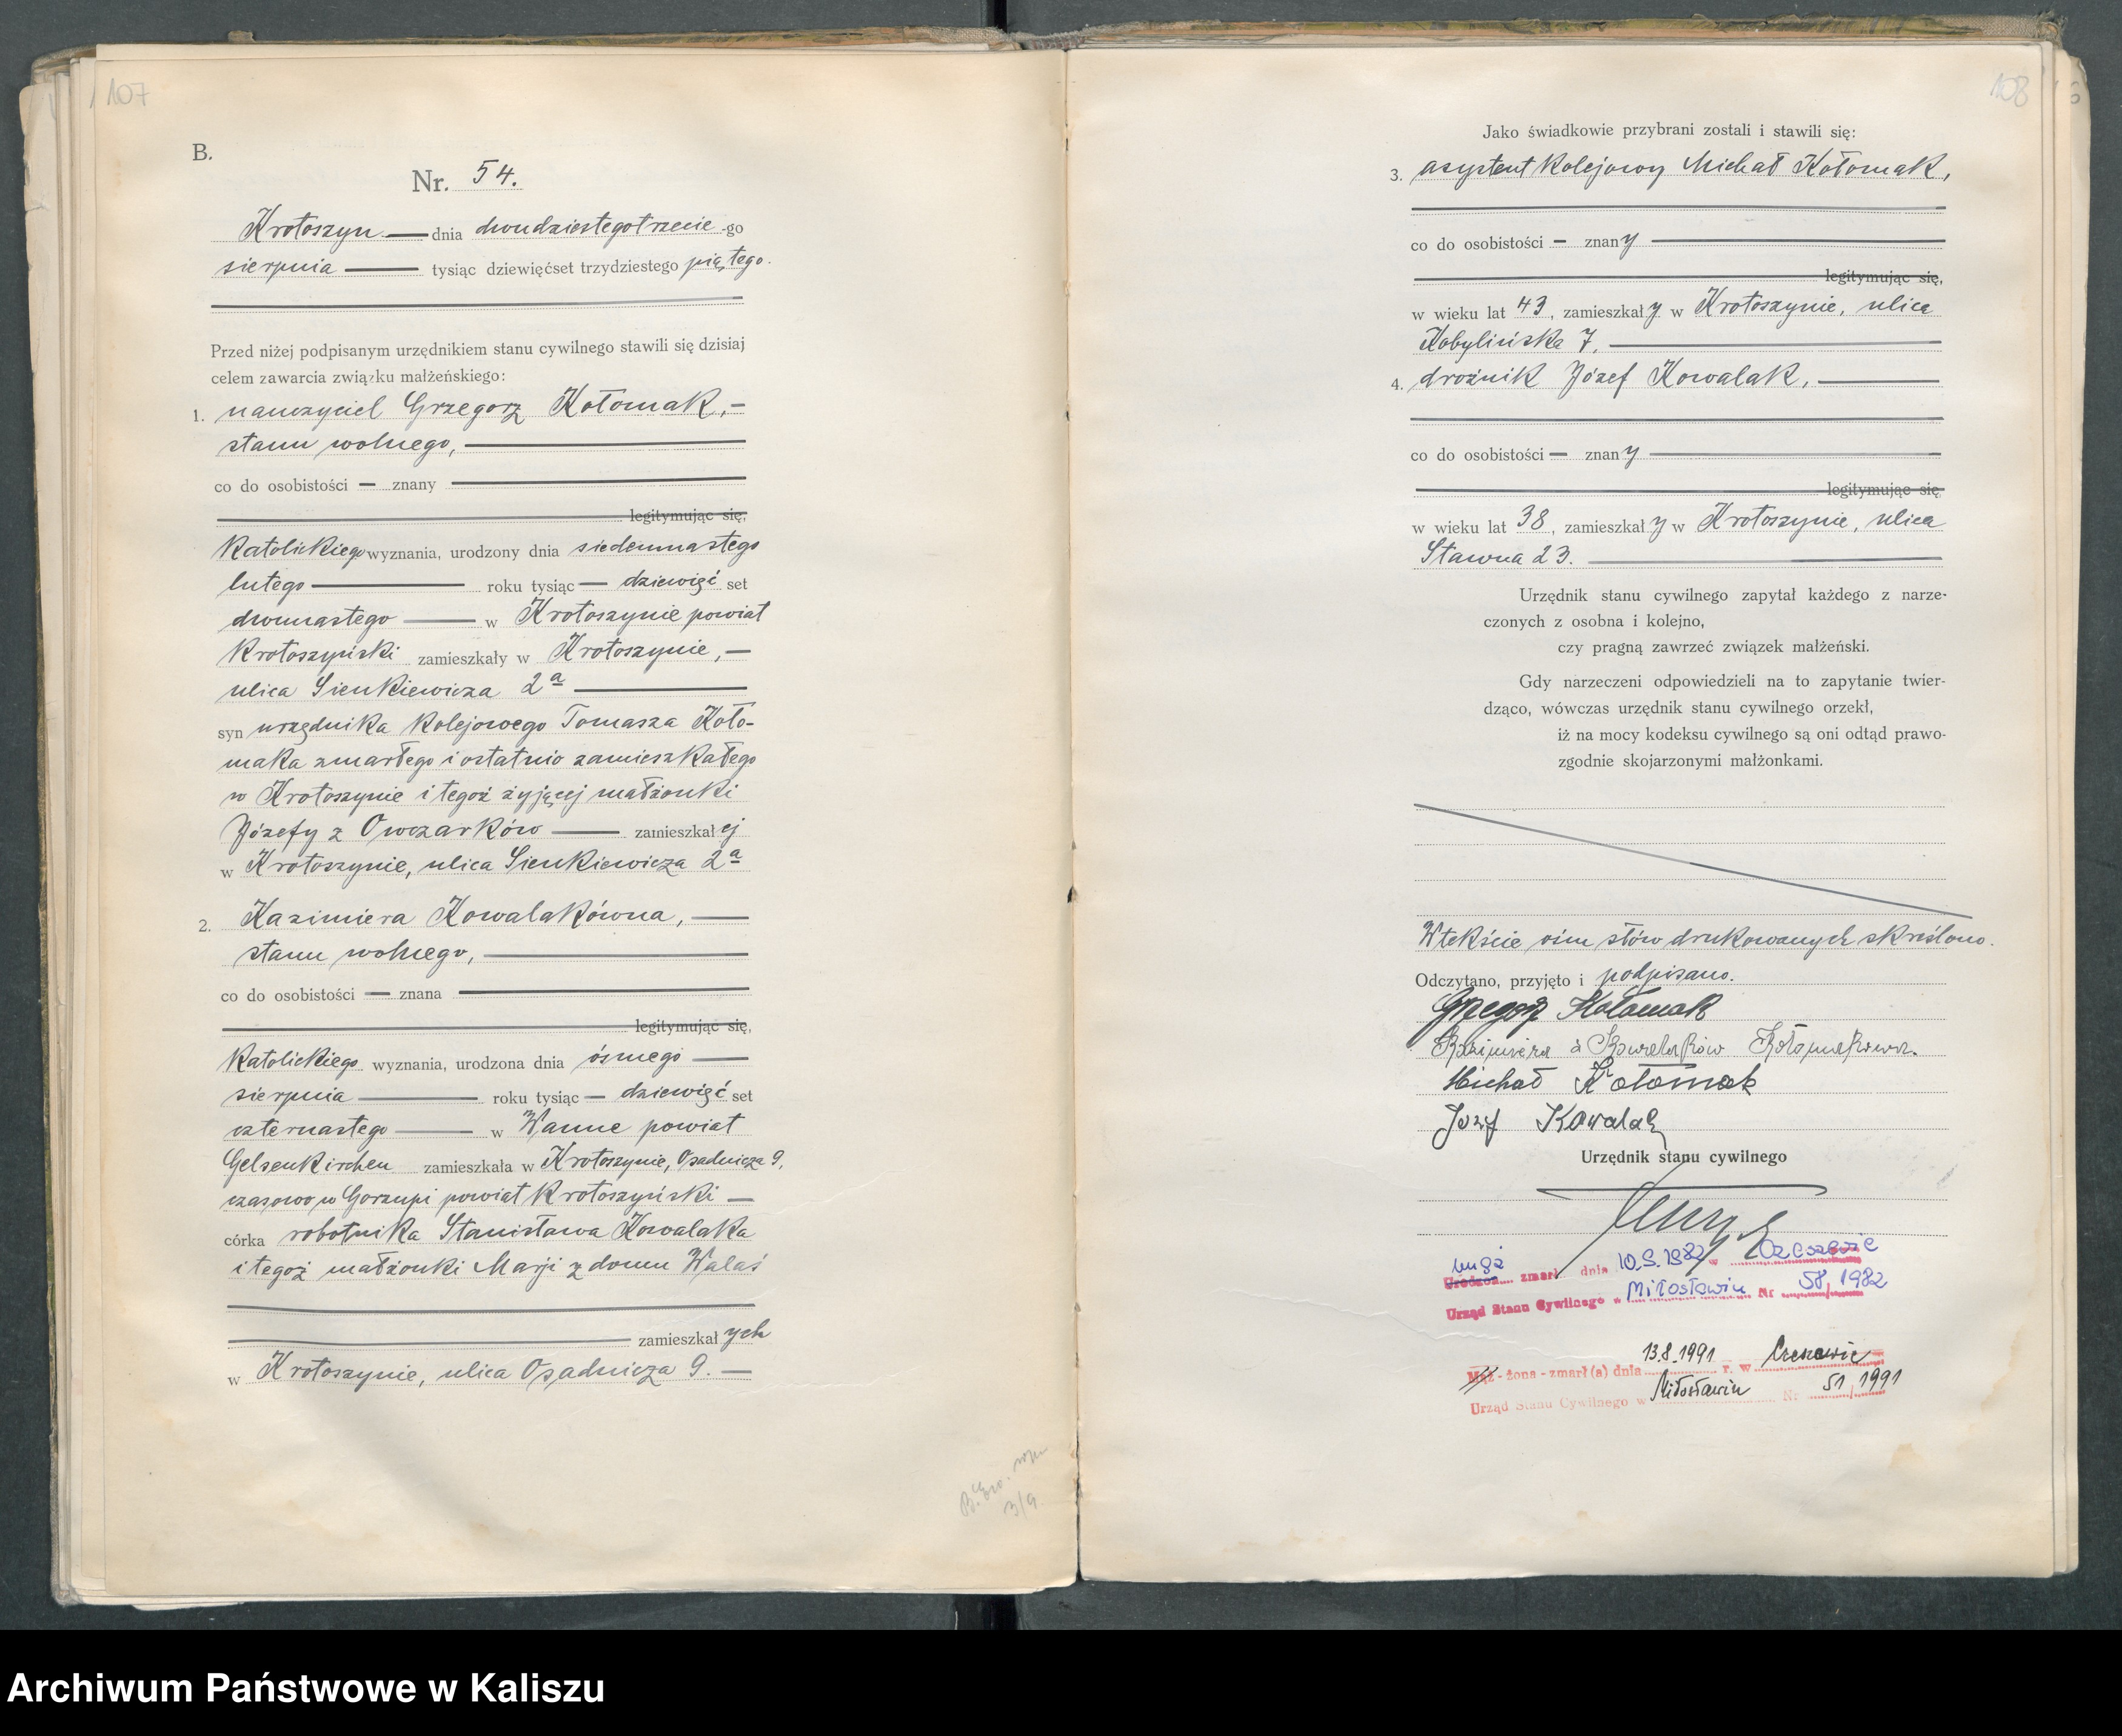 107
B.
Nr. 54.
Krotoszyn dnia dwudziestegotrzecie -go
sierpnia tysiąc dziewięćset trzydziestego piątego.
Przed niżej podpisanym urzędnikiem stanu cywilnego stawili się dzisiaj
celem zawarcia związku małżeńskiego:
1. nauczyciel Grzegorz Kołomak, -
stanu wolnego,
co do osobistości — znany
legitymując się,
Katolickiego wyznania, urodzony dnia siedemnastego
lutego roku tysiąc — dziewięć set
dwunastego w Krotoszynie powiat
Krotoszyński zamieszkały w Krotoszynie, —
ulica Sienkiewicza 2a
syn urzędnika kolejowego Tomasza Koło-
maka zmarłego i ostatnio zamieszkałego
w Krotoszynie i tegoż żyjącej małżonki
Józefy z Owczarków zamieszkałej
w Krotoszynie, ulica Sienkiewicza 2a
2. Kazimiera Kowalakówna,
stanu wolnego,
co do osobistości — znana
legitymując się,
Katolickiego wyznania, urodzona dnia ósmego
sierpnia roku tysiąc — dziewięć set
czternastego w Wanne powiat
Gelsenkirchen zamieszkała w Krotoszynie, Osadnicza 9,
czasowo w Gorzupi powiat Krotoszyński —
córka robotnika Stanisława Kowalaka
i tegoż małżonki Marji z domu Walaś
zamieszkałych
w Krotoszynie, ulica Osadnicza 9. —
3/9
108
Jako świadkowie przybrani zostali i stawili się:
3. asystent kolejowy Michał Kołomak,
co do osobistości — znany
legitymując się,
w wieku lat 43, zamieszkały w Krotoszynie, ulica
Kobylińska 7,
4. drożnik Józef Kowalak,
co do osobistości — znany
legitymując się
w wieku lat 38, zamieszkały w Krotoszynie, ulica
Stawna 23.
Urzędnik stanu cywilnego zapytał każdego z narze-
czonych z osobna i kolejno,
czy pragną zawrzeć związek małżeński.
Gdy narzeczeni odpowiedzieli na to zapytanie twier-
dząco, wówczas urzędnik stanu cywilnego orzekł,
iż na mocy kodeksu cywilnego są oni odtąd prawo-
zgodnie skojarzonymi małżonkami.
W tekście ośm słów drukowanych skreślono.
Odczytano, przyjęto i podpisano.
Grzegorz Kołomak
Kazimiera z Kowalaków Kołomakowa.
Michał Kołomak
Józef Kowalak
Urzędnik stanu cywilnego
mąż zmarł dnia 10.5.1982 w Czeszewie
Urząd Stanu Cywilnego w Miłosławiu Nr 58/1982
Mąż - żona - zmarł(a) dnia 13.8.1991 r. w Czeszewie
Urząd Stanu Cywilnego w Miłosławiu Nr 51/1991
Archiwum Państwowe w Kaliszu